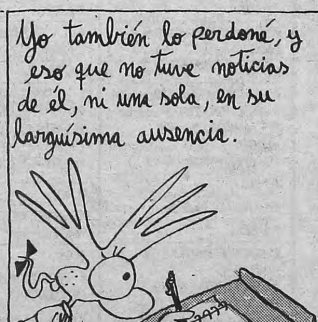 Yo también lo perdoné, y
eso que no tuve noticias
de él, ni una sola, en su
larguísima ausencia.